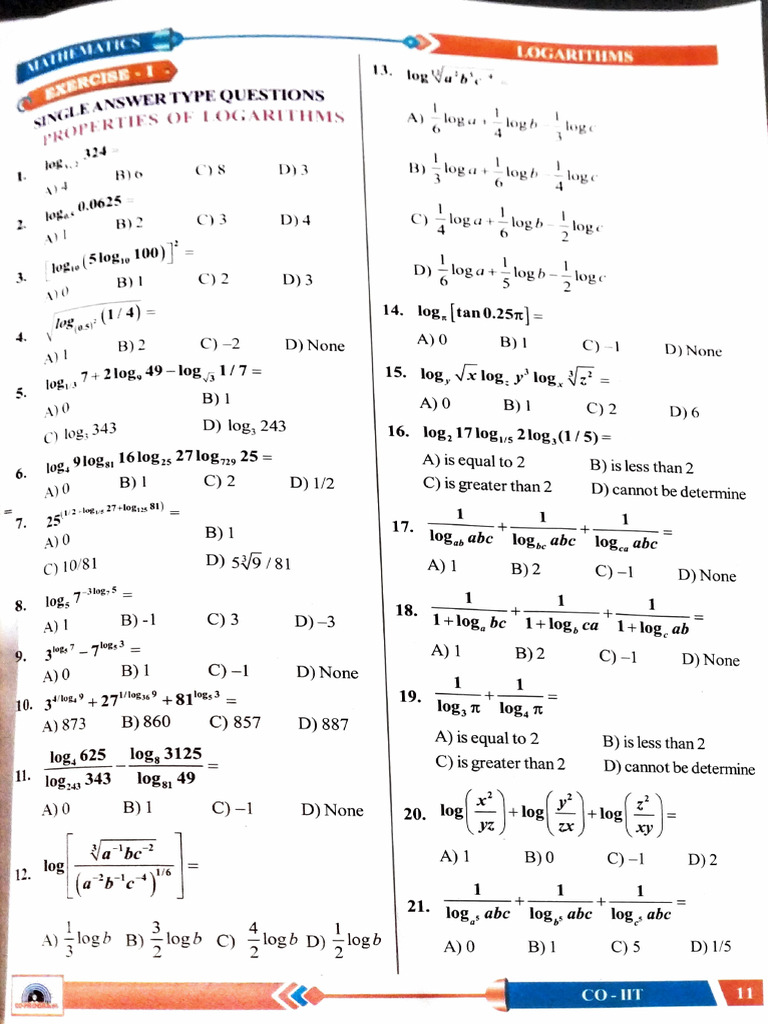 MATHEMATICS
LOGARITHMS
EXERCISE - I
SINGLE ANSWER TYPE QUESTIONS
PROPERTIES OF LOGARITHMS
1. log 324 =
A) 4 B) 6 C) 8 D) 3
2. log₀.₅ 0.0625 =
A) 1 B) 2 C) 3 D) 4
3. [log₁₀(5log₁₀ 100)]² =
A) 0 B) 1 C) 2 D) 3
4. √(log_(0.5)² (1 / 4)) =
A) 1 B) 2 C) –2 D) None
5. log_1/3 7 + 2log₉ 49 – log_√3 1 / 7 =
A) 0 B) 1
C) log₃ 343 D) log₃ 243
6. log₄ 9log₈₁ 16log₂₅ 27log₇₂₉ 25 =
A) 0 B) 1 C) 2 D) 1/2
=
7. 25^(1/2 - log_1/5 27 + log₁₂₅ 81) =
A) 0 B) 1
C) 10/81 D) 5∛9 / 81
8. log₅ 7^(–3log₇ 5) =
A) 1 B) -1 C) 3 D) –3
9. 3^(log₅ 7) – 7^(log₅ 3) =
A) 0 B) 1 C) –1 D) None
10. 3^(4/log₄ 9) + 27^(1/log₃₆ 9) + 81^(log₅ 3) =
A) 873 B) 860 C) 857 D) 887
11. log₄ 625 / log₂₄₃ 343 – log₈ 3125 / log₈₁ 49 =
A) 0 B) 1 C) –1 D) None
12. log[∛(a⁻¹bc⁻²) / (a⁻²b⁻¹c⁻⁴)^(1/6)] =
A) 1/3 log b B) 3/2 log b C) 4/2 log b D) 1/2 log b
13. log a²b³c =
A) 1/6 log a + 1/4 log b – 1/3 log c
B) 1/3 log a + 1/6 log b – 1/4 log c
C) 1/4 log a + 1/6 log b – 1/2 log c
D) 1/6 log a + 1/5 log b – 1/2 log c
14. log_π [tan 0.25π] =
A) 0 B) 1 C) –1 D) None
15. log_y √x log_z y³ log_x ∛z² =
A) 0 B) 1 C) 2 D) 6
16. log₂ 17 log_1/5 2 log₃ (1 / 5) =
A) is equal to 2 B) is less than 2
C) is greater than 2 D) cannot be determine
17. 1/log_ab abc + 1/log_bc abc + 1/log_ca abc =
A) 1 B) 2 C) –1 D) None
18. 1/(1 + log_a bc) + 1/(1 + log_b ca) + 1/(1 + log_c ab) =
A) 1 B) 2 C) –1 D) None
19. 1/log₃ π + 1/log₄ π =
A) is equal to 2 B) is less than 2
C) is greater than 2 D) cannot be determine
20. log(x²/yz) + log(y²/zx) + log(z²/xy) =
A) 1 B) 0 C) –1 D) 2
21. 1/log_a⁵ abc + 1/log_b⁵ abc + 1/log_c⁵ abc =
A) 0 B) 1 C) 5 D) 1/5
CO - IIT
11